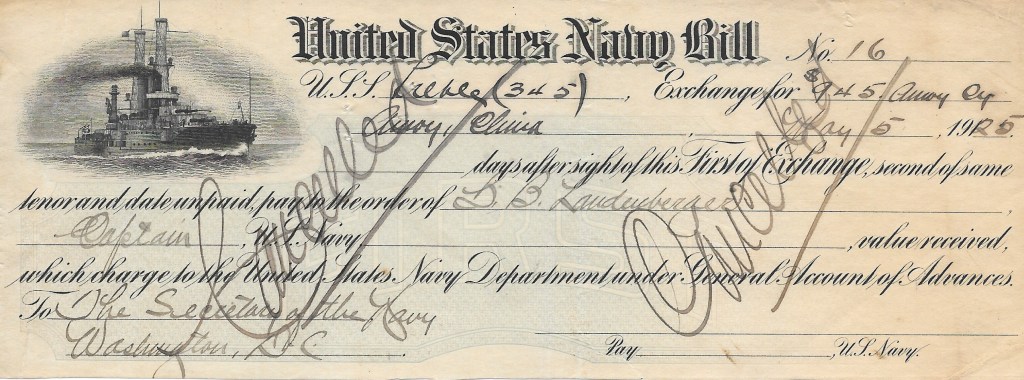 United States Navy Bill No. 16
U.S.S. Preble (345), Exchange for $945 Amoy Cy
Amoy, China, May 5, 1925.
days after sight of this First of Exchange, second of same
tenor and date unpaid, pay to the order of L. B. Landenberger,
Captain, U.S. Navy, value received,
which charge to the United States Navy Department under General Account of Advances.
To The Secretary of the Navy
Washington, D.C.
Pay, U.S. Navy.
Cancelled
Cancelled